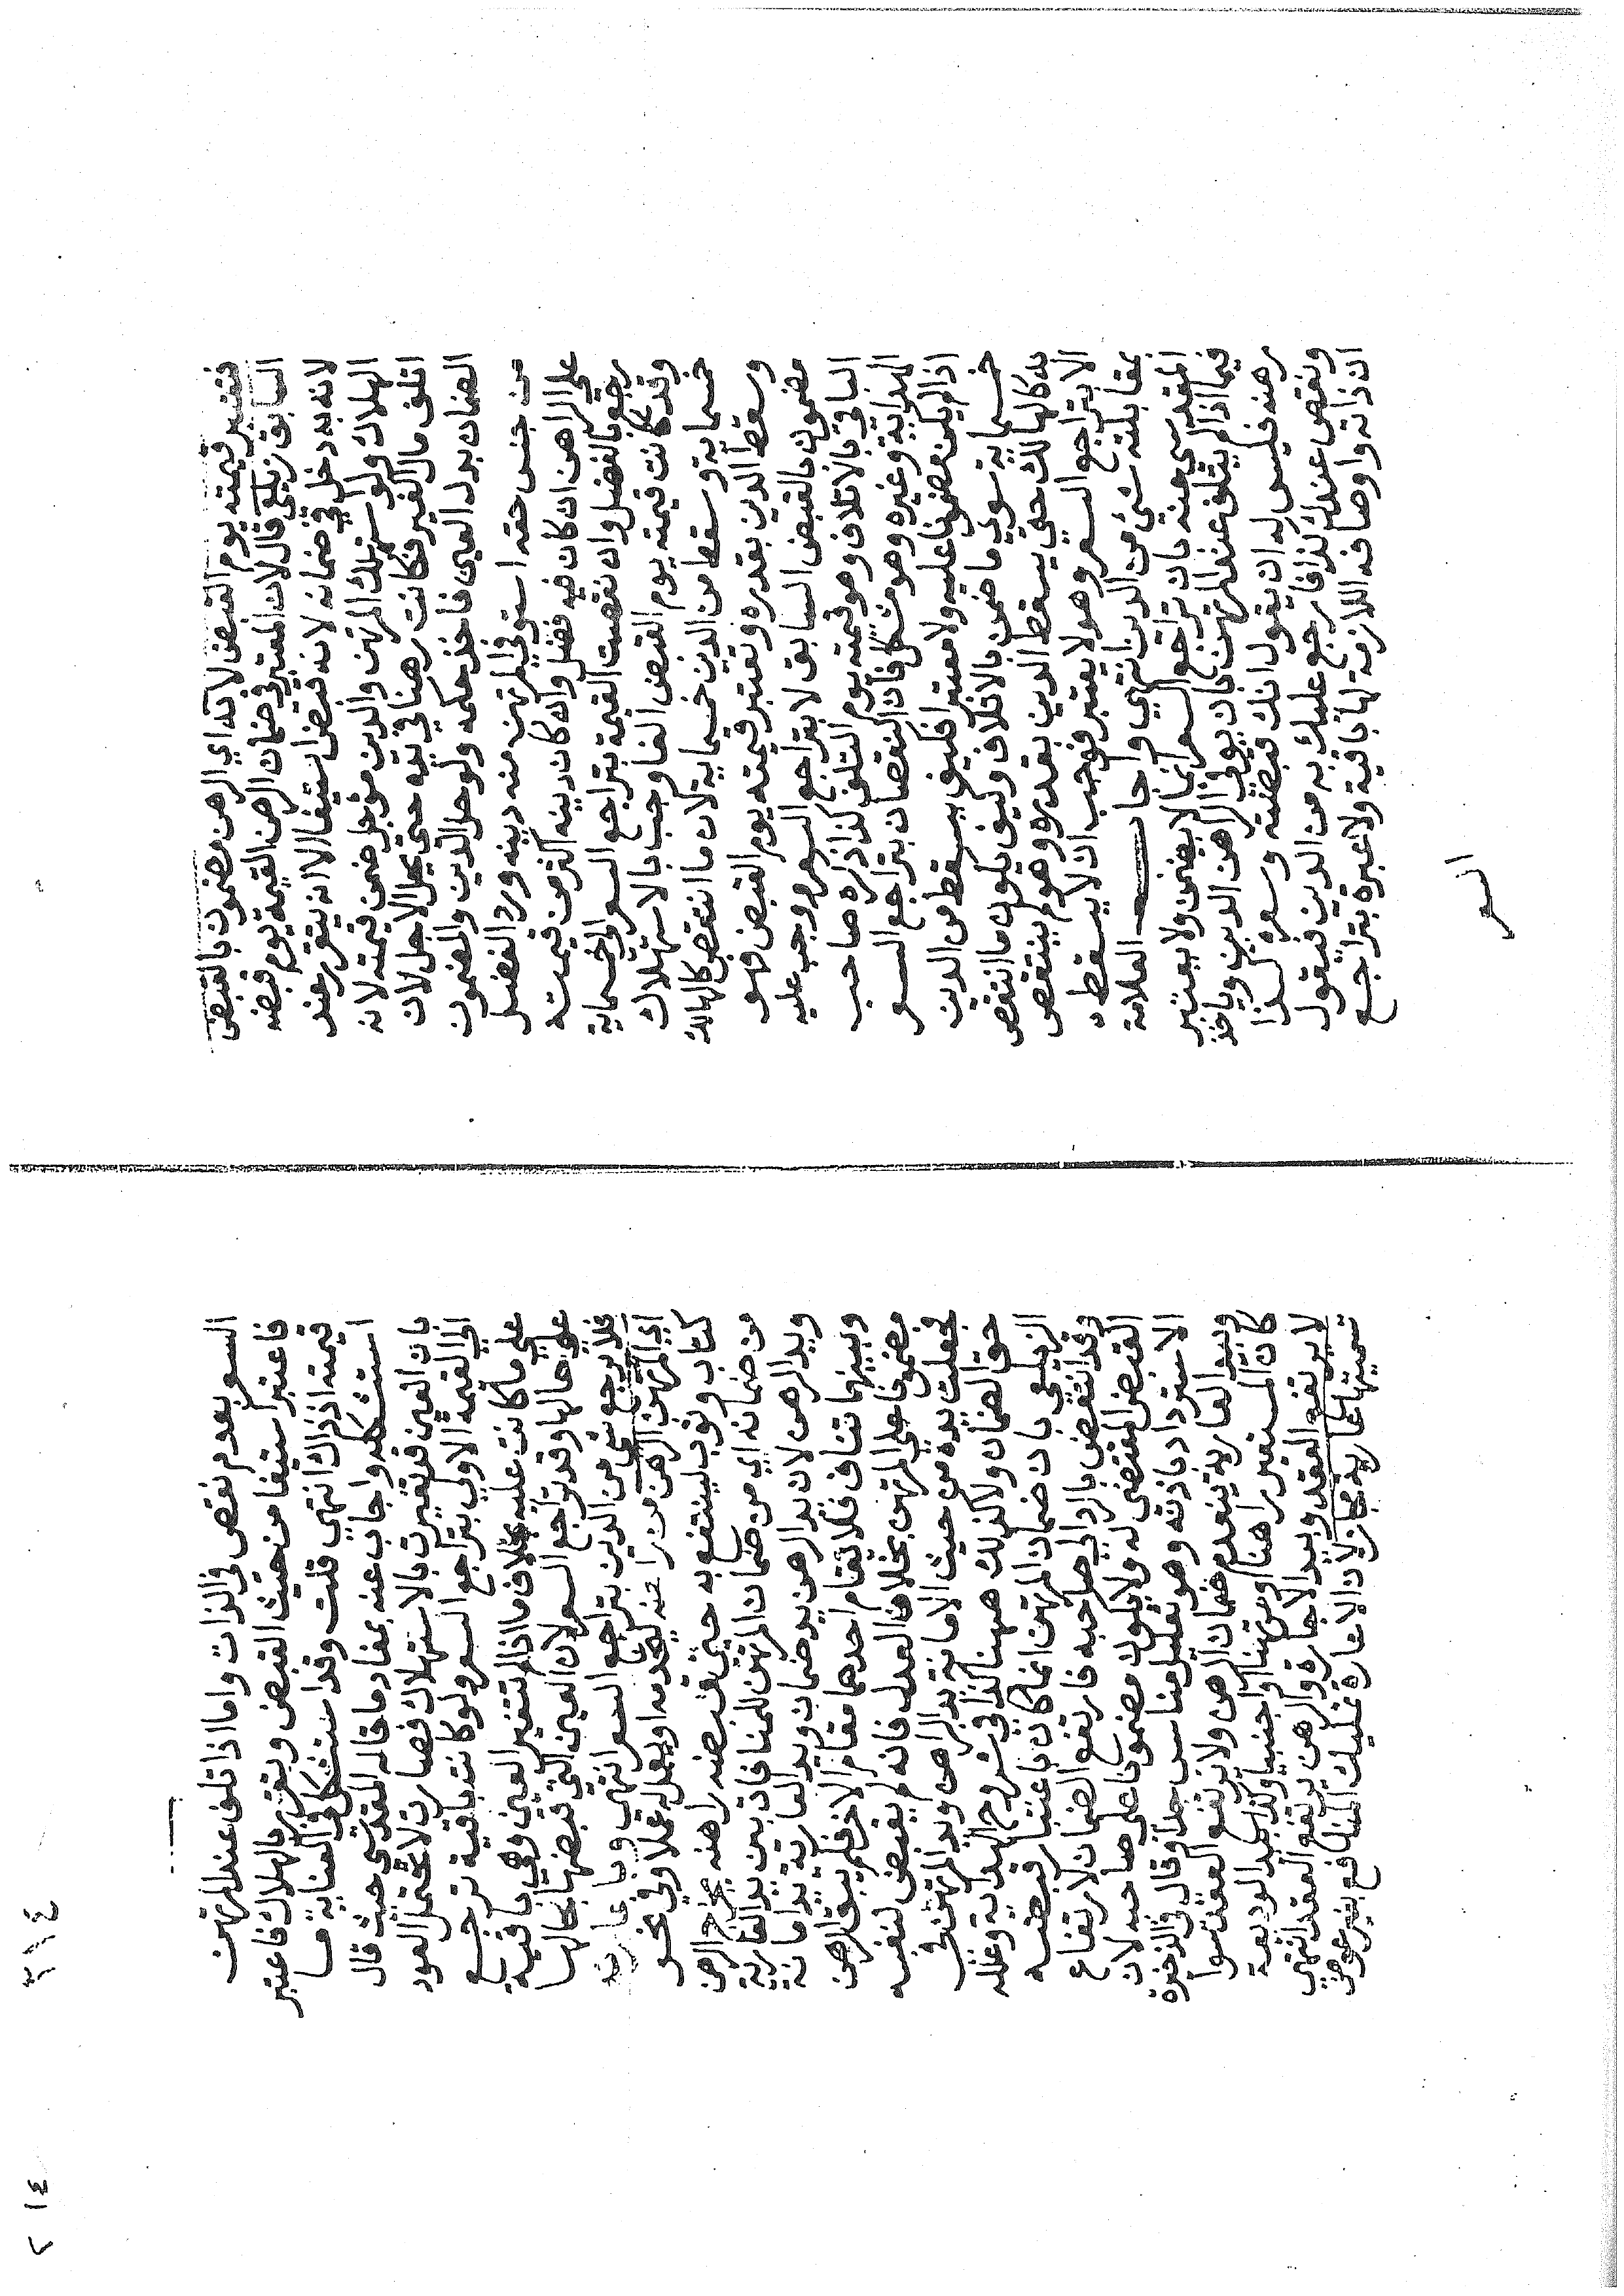 فتعتبر قيمته يوم القبض لانه اي الرهن مضمون بالقبض
السابق زيلعي قال لان المعتبر في ضمان الرهن القيمة يوم قبضه
لانه به دخل في ضمانه لانه قبض استيفا الا انه يتقرر عند
الهلاك ولو استهلك المرتهن والدين مؤجل ضمن قيمته لانه
اتلف مال الغير فكانت رهنا في يده حتي يحل الاجل لان
الضمان بدل العين فاخذ حكمه ولو حل الدين والمضمون
من جنس حقه استوفي المرتهن منه دينه ورد الفضل
علي الراهن ان كان فيه فضل وان كان دينه اكثر من قيمته
رجع بالفضل وان نقصت القيمة بتراجع السعر الي خمسماية
وقد كانت قيمته يوم القبض الفا وجب بالاستهلاك
خمسماية وسقط من الدين خمسماية لان ما انتقص كالهالك
وسقط الدين بقدره وتعتبر قيمته يوم القبض فهو
مضمون بالقبض السابق لا بتراجع السعر ووجب عليه
الباقي بالاتلاف وهو قيمته يوم التلف كذا ذكره صاحب
الهداية وغيره وهو مشكل فان النقصان بتراجع السعر
اذا لم يكن مضمونا عليه ولا معتبرا فكيف يسقط من الدين
خمسماية سوي ما ضمن بالاتلاف وكيف يكون ما انتقص
به كالهالك حتي يسقط الدين بقدره وهو لم ينتقص
الا بتراجع السعر وهو لا يعتبر فوجب ان لا يسقط
بمقابلته شئ من الدين انتهي واجاب العلامة
المقدسي عنه بان تراجع السعر انما لا يضمن ولا يعتبر
فيما اذا لم يتلف عند المرتهن بان يوفي الراهن الدين وياخذ
رهنه فليس له ان يقول انك قبضته وسعره كذا
ونقص عندك كذا فارجع عليك به من الدين فيقول
ان ذاته واوصافه اللازمة لها باقية ولا عبرة بتراجع
السعر
السعر بعدم نقص في الذات واما اذا تلف عند المرتهن
فاعتبر استيفا من حيث القبض ويتقرر بالهلاك فاعتبر
قيمته اذ ذاك انتهي قلت وقد استشكل في العناية ما
استشكله واجاب عنه بمفاد ما قاله المقدسي حيث قال
بان العين قد تغيرت بالاستهلاك فصارت لا تحتمل العود
الي القيمة الاولي بتراجع السعر ولو كانت باقية ترجع
علي ما كانت عليه بخلاف ما اذا لم تتغير العين وهي باقية
علي حالها وقد تراجع السعر لان العين التي قبضها بحالها
فلا يرجع بشئ من الدين بتراجع السعر انتهي وباعارته
اي المرتهن الرهن من راهنه ليخدمه او يعمل له عملا وفي نحو
كتاب وثوب لينتفع به حتي قبضه راهنه يخرج الرهن
من ضمانه اي من ضمان المرتهن للمنافاة بين يد العارية
ويد الرهن لان يد الرهن يد ضمان ويد العارية يد امانة
وبينهما تناف فلا تقام احدهما مقام الاخر فلم يبق الرهن
مضمونا علي المرتهن بخلاف العدل فانه لم يقبض لنفسه
فجعلت يده من حيث الامانة يد الراهن ويد المرتهن في
حق الضمان ولا كذلك ههنا كذا في شروح الهداية وعلله
الزيلعي بان ضمان المرتهن انما كان باعتبار قبضه
وقد انتقض بالرد الي صاحبه فارتفع الضمان لارتفاع
القبض المقتضي له ولا يكون مضمونا علي صاحبه لان
الاسترداد باذنه وهو تعليل مناسب جدا وقال في الذخيرة
وبيد العارية ينعدم ضمان الرهن ولا يرتفع العقد سوا
كان المستعير راهنا او مرتهنا او اجنبيا وكذلك بيد الوديعة
لا يرتفع العقد وبيد الاجارة والرهن يرتفع العقد انتهي
تسميتها عارية مجاز لان الاعارة تمليك المنافع بغير عوض
٣١٤
٢١٤